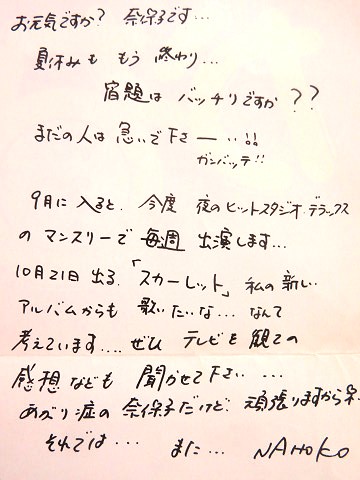 お元気ですか? 奈保子です…
夏休みも もう 終わり…
宿題は バッチリですか??
まだの人は 急いで下さー…!!
ガンバッテ!!
9月に 入ると、今度 夜のヒットスタジオ・デラックス
の マンスリーで 毎週 出演します…
10月21日 出る「スカーレット」私の新しい
アルバムからも 歌いたいな… なんて
考えています…. ぜひ テレビを 観ての
感想なども 聞かせて下さい …
あがり症の 奈保子だけど、頑張りますから
それでは… また… NAHOKO